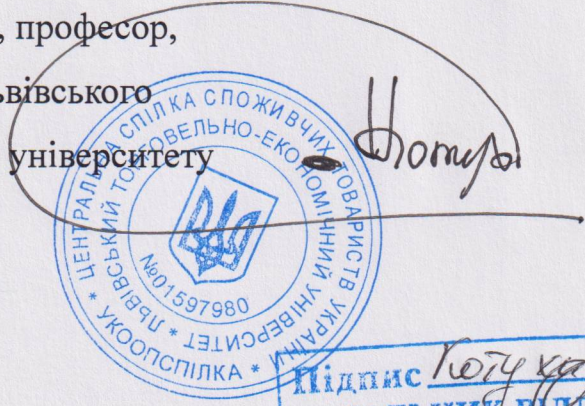 , професор,
ьвівського
університету
* ЦЕНТРАЛЬНА СПІЛКА СПОЖИВЧИХ ТОВАРИСТВ УКРАЇНИ * УКООПСПІЛКА
* ЛЬВІВСЬКИЙ ТОРГОВЕЛЬНО-ЕКОНОМІЧНИЙ УНІВЕРСИТЕТ
№01597980
Підпис